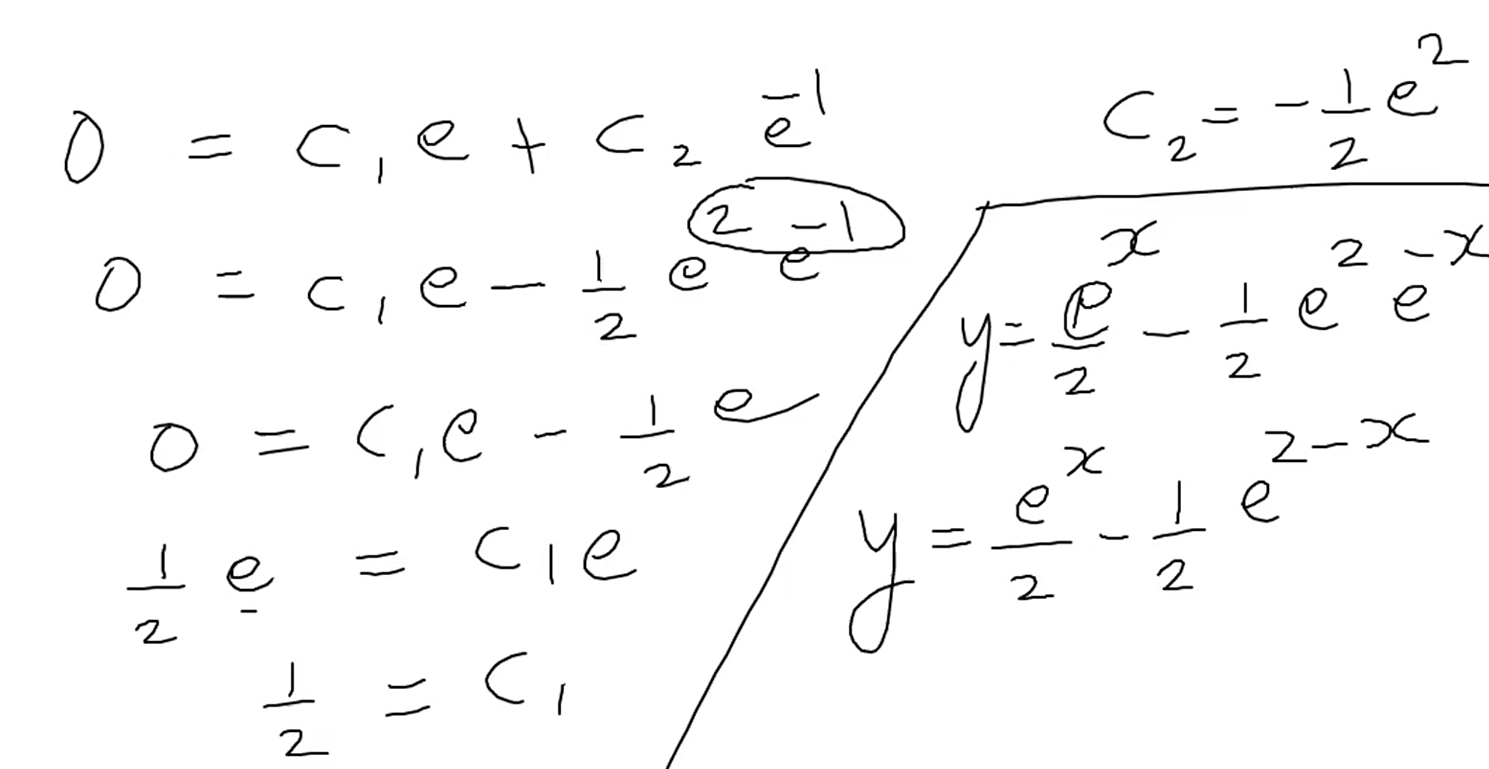 0 = c₁e + c₂ e⁻¹
0 = c₁e − 1/2 e² e⁻¹
0 = c₁e − 1/2 e
1/2 e = c₁e
1/2 = c₁
c₂ = −1/2 e²
y = eˣ/2 − 1/2 e² e⁻ˣ
y = eˣ/2 − 1/2 e²⁻ˣ